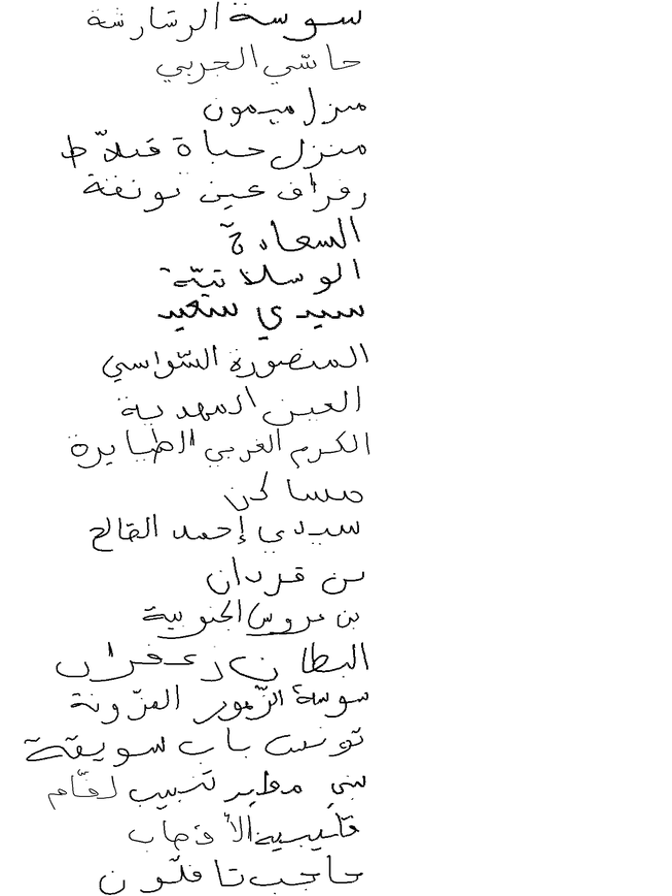 سوسة الرشارشة
حاشي الحربي
منزل ميمون
منزل حياة قبلاّط
رفراف عين تونقة
السعادة
الوسلاتيّة
سيدي سعيد
المنصورة الشّواسي
العين المهدية
الكرم الغربي الطبايرة
مساكن
سيدي إحمد الصالح
بن قردان
بن عروس الجنوبية
البطان زعفران
سوسة الزّهور الفزّونة
تونس باب سويقة
بني مطير تنبيب لقّام
قليبية الأقصاب
حاجب تافلّون